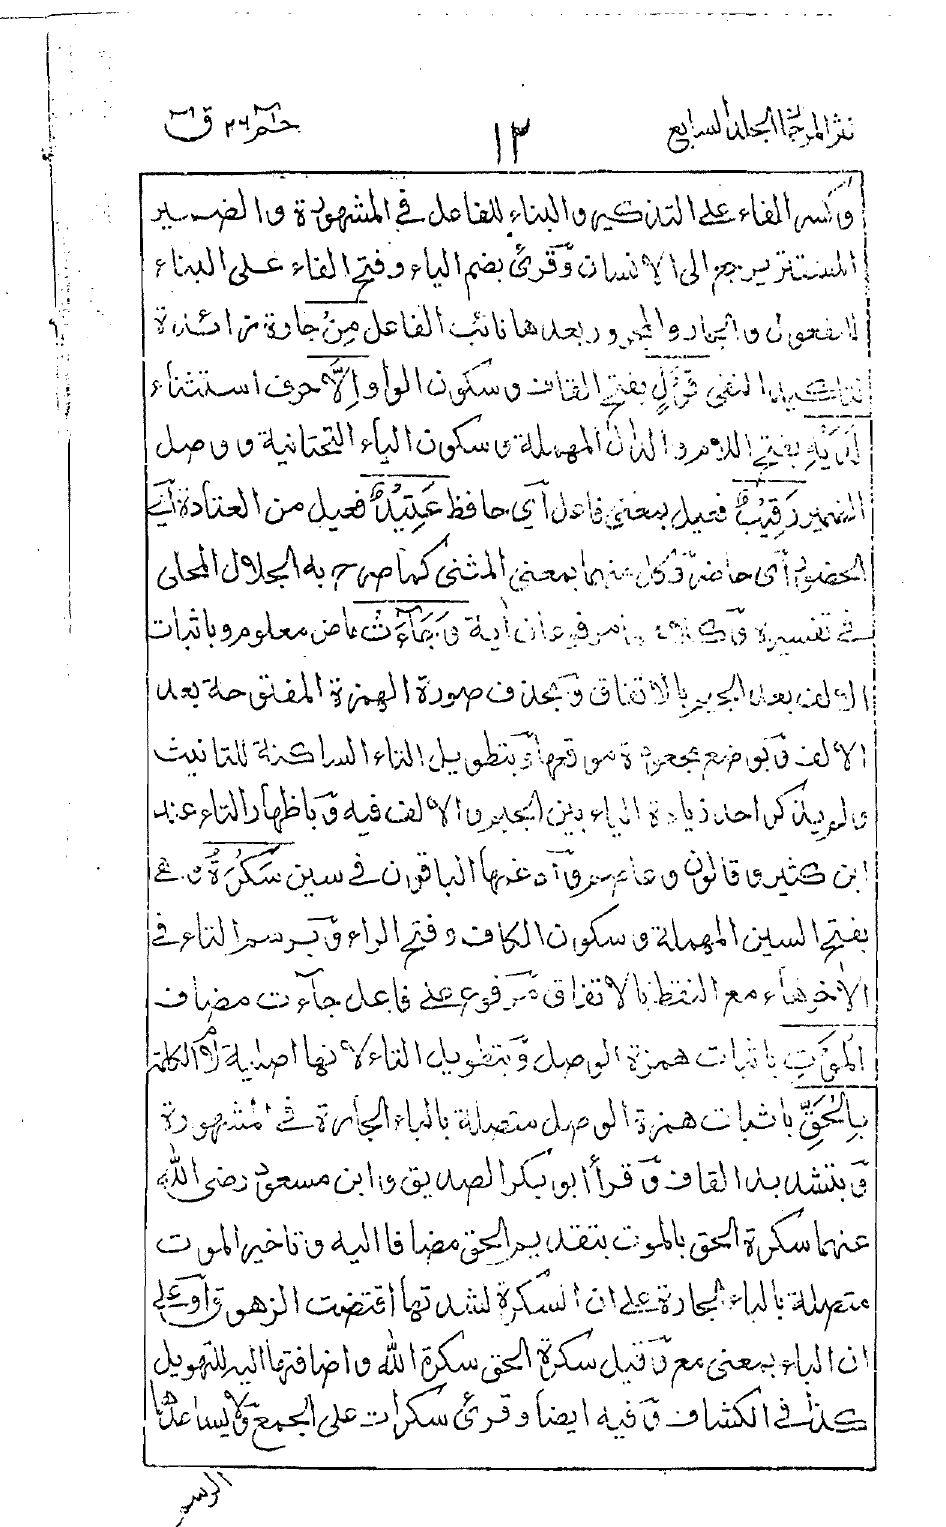 نثر المرجان الجلد السابع
١٢
حٰم ٢٦ ق
وكسر الفاء على التذكير والبناء للفاعل فى المشهورة والضمير
المستتر يرجع الى الانسان وقرئ بضم الياء وفتح الفاء على البناء
للمفعول والجار والمجرور بعدها نائب الفاعل مِنْ جارة زائدة
لتاكيد النفى قَوْلٍ بفتح القاف وسكون الواو اِلَّا حرف استثناء
لَدَيْهِ بفتح اللام والدال المهملة وسكون الياء التحتانية ووصل
الضمير رَقِيْبٌ فعيل بمعنى فاعل آى حافظ عَتِيْدٌ فعيل من العتادة آى
الحضور آى حاضر وكل منهما بمعنى المثنى كما صرح به الجلال المحلى
فى تفسيره وكلاهما مرفوعان اٰية وَجَآءَتْ ماض معلوم وباثبات
الالف بعد الجيم بالاتفاق وبحذف صورة الهمزة المفتوحة بعد
الالف وبوضع مجعودة موقعها وبتطويل التاء الساكنة للتانيث
ولم يذكر احد زيادة الياء بين الجيم والالف فيه وباظهار التاء عند
ابن كثير وقالون وعاصم وآدغمها الباقون فى سين سَكْرَةُ
بفتح السين المهملة وسكون الكاف وفتح الراء وبرسم التاء فى
الاٰخر هاء مع النقط بالاتفاق مرفوع على فاعل جآءت مضاف
الْمَوْتِ باثبات همزة الوصل وبتطويل التاء لانها اصلية لام الكلمة
بِالْحَقِّ باثبات همزة الوصل متصلة بالباء الجارة فى المشهورة
وبتشديد القاف وقرأ ابو بكر الصديق وابن مسعود رضى الله
عنهما سكرة الحق بالموت بتقديم الحق مضافا اليه وتاخير الموت
متصلة بالباء الجارة على ان السكرة لشدتها اقتضت الزهوق او على
ان الباء بمعنى مع وقيل سكرة الحق سكرة الله واضافتها اليه للتهويل
كذا فى الكشاف وفيه ايضا وقرئ سكرات على الجمع ولا يساعدها
الرسم